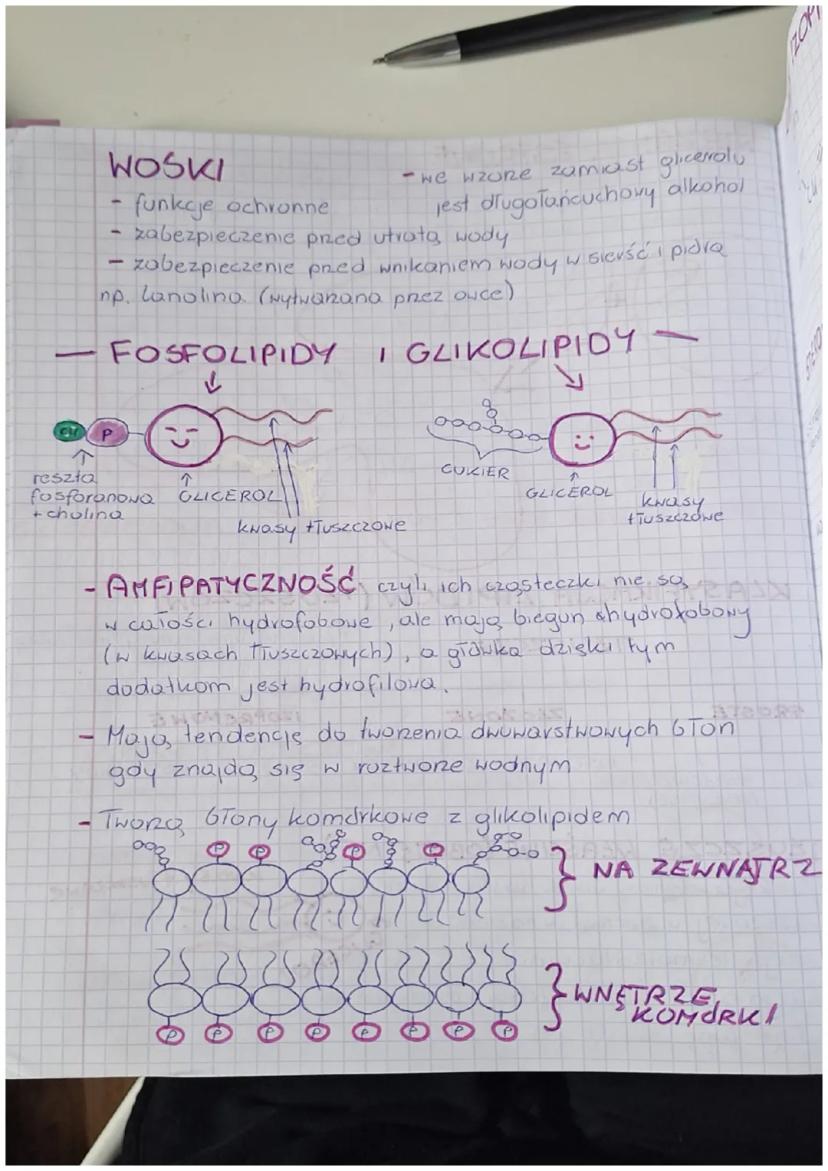 WOSKI
- we wzorze zamiast glicerolu
jest długołańcuchowy alkohol
- funkcje ochronne
- zabezpieczenie przed utratą wody
- zabezpieczenie przed wnikaniem wody w sierść i pióra
np. lanolina (wytwarzana przez owce)
— FOSFOLIPIDY I GLIKOLIPIDY —
CH P
reszta
fosforanowa
+ cholina
GLICEROL
kwasy tłuszczowe
CUKIER
GLICEROL
kwasy
tłuszczowe
- AMFIPATYCZNOŚĆ czyli ich cząsteczki nie są
w całości hydrofobowe, ale mają biegun hydrofobowy
(w kwasach tłuszczowych), a główka dzięki tym
dodatkom jest hydrofilowa.
- Mają tendencję do tworzenia dwuwarstwowych błon
gdy znajdą się w roztworze wodnym
- Tworzą błony komórkowe z glikolipidem
P P P P
} NA ZEWNĄTRZ
} WNĘTRZE
KOMÓRKI
P P P P P P P P